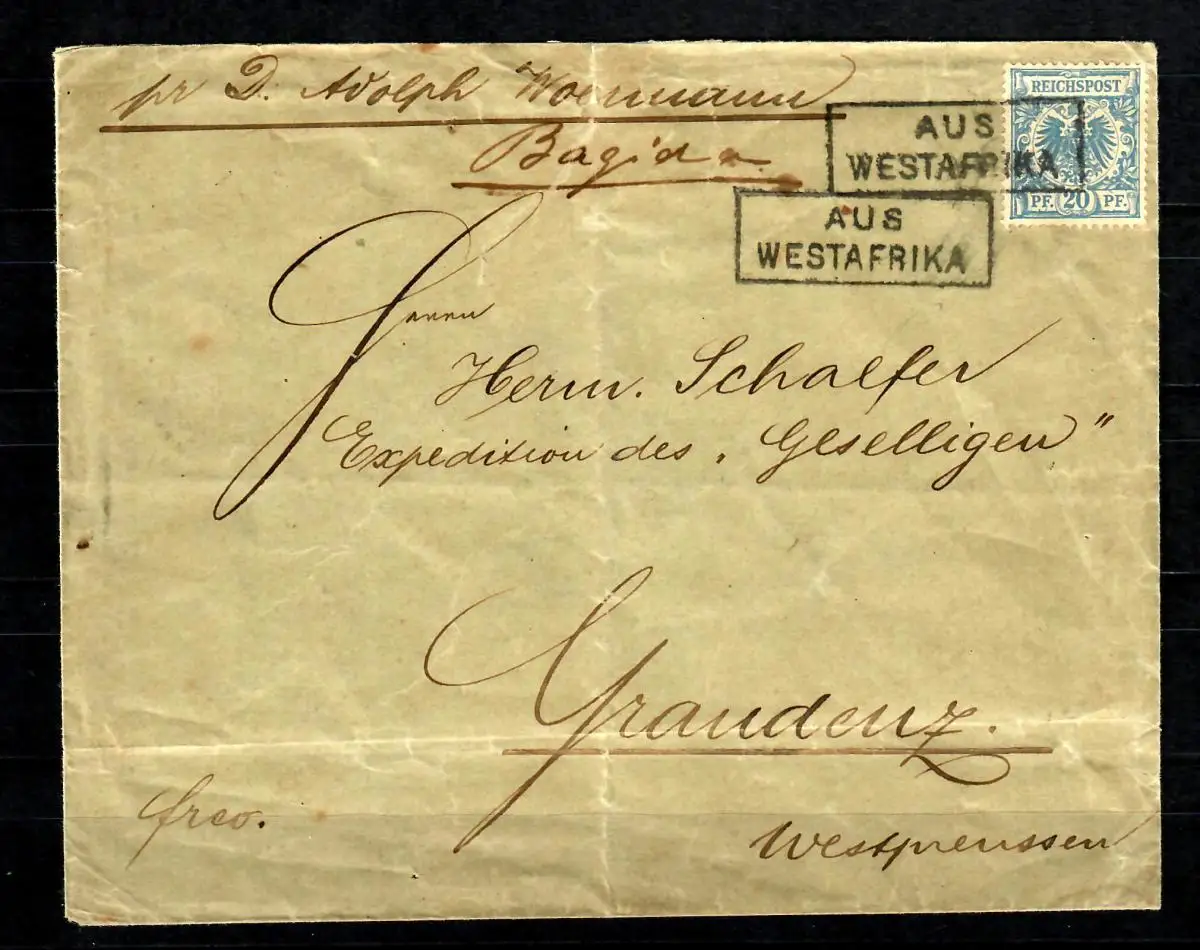 pr D. Adolph Woermann
Bagida
REICHSPOST
PF. 20 PF.
AUS
WESTAFRIKA
AUS
WESTAFRIKA
Herrn
Herm. Schaefer
Expedition des „Geselligen"
Graudenz.
frco.
Westpreussen